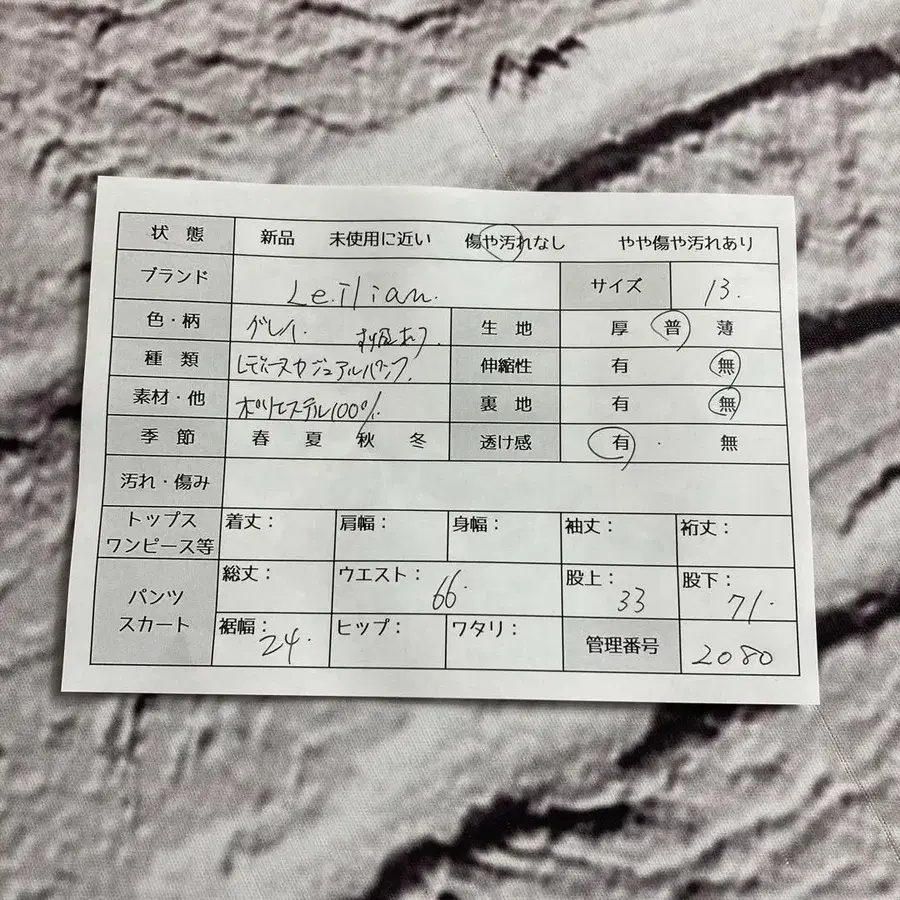 状態 新品 未使用に近い 傷や汚れなし やや傷や汚れあり
ブランド Leilian. サイズ 13.
色・柄 グレイ. 生地 厚 普 薄
種類 レディースカジュアルパンツ. 伸縮性 有 無
素材・他 ポリエステル100%. 裏地 有 無
季節 春 夏 秋 冬 透け感 有 · 無
汚れ・傷み
トップス ワンピース等 着丈: 肩幅: 身幅: 袖丈: 裄丈:
パンツ スカート 総丈: ウエスト: 66. 股上: 33 股下: 71.
裾幅: 24. ヒップ: ワタリ: 管理番号 2080